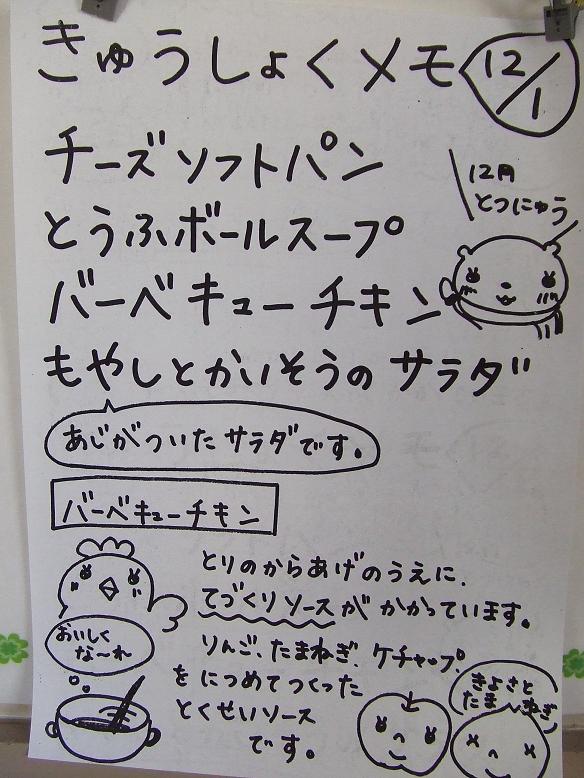 きゅうしょくメモ 12/1
12月
とつにゅう
チーズソフトパン
とうふボールスープ
バーベキューチキン
もやしとかいそうのサラダ
あじがついたサラダです。
バーベキューチキン
とりのからあげのうえに、
てづくりソースがかかっています。
りんご、たまねぎ、ケチャップ、
をにつめてつくった
とくせいソース
です。
おいしく
な〜れ
きよさと
たまねぎ